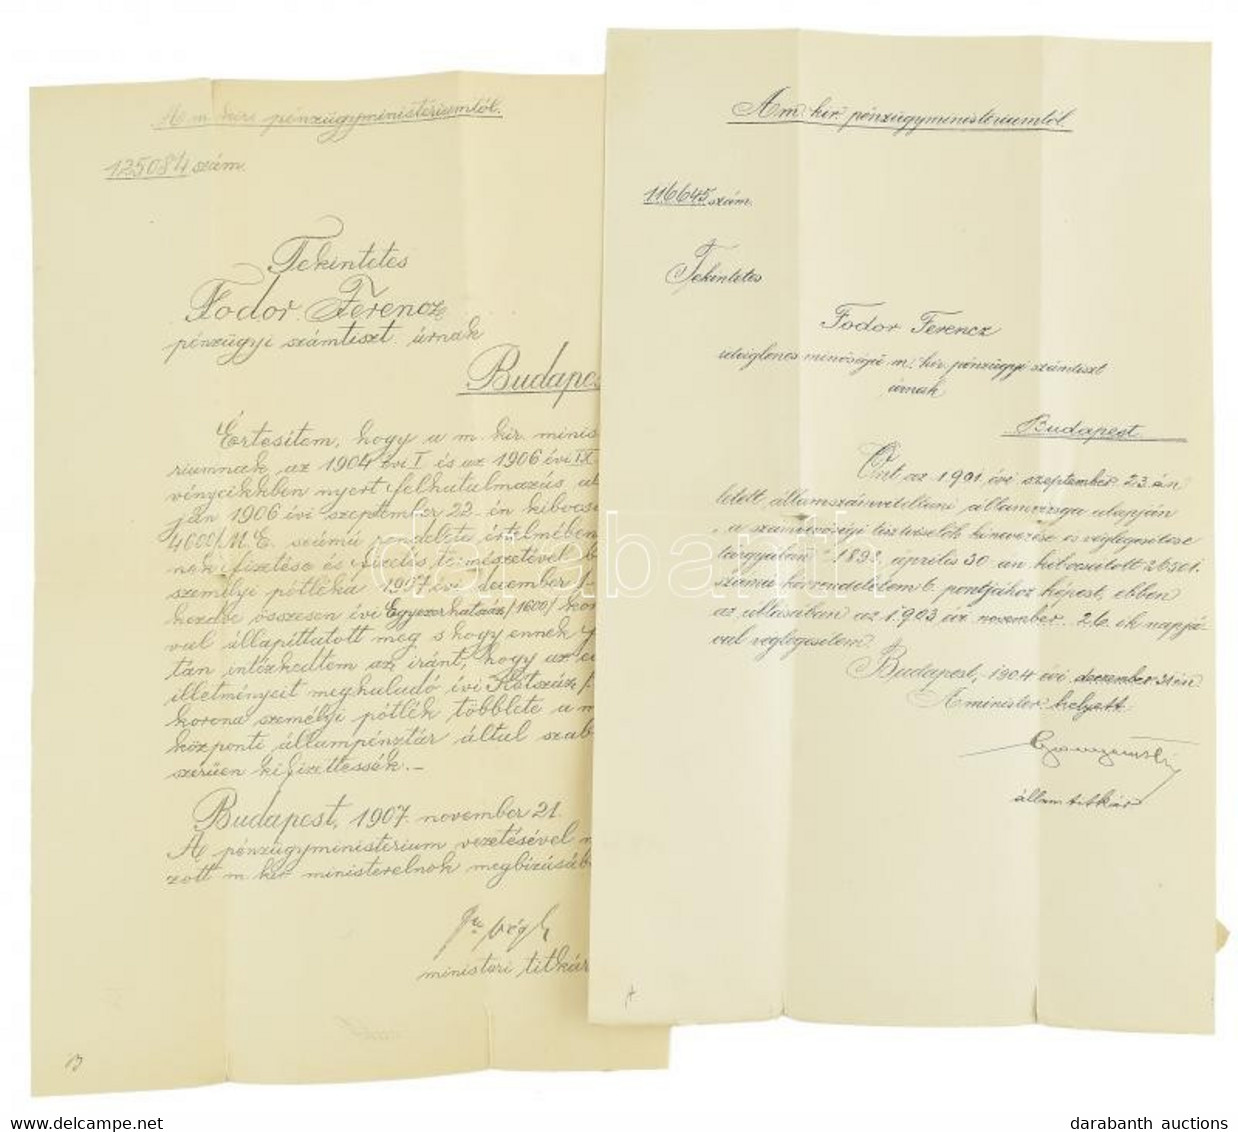 A m. kir. pénzügyministeriumtól.
125084 szám.
Tekintetes
Fodor Ferencz
pénzügyi számtiszt úrnak
Budapes
Értesitem, hogy a m. kir. minis
riumnak az 1904 évi I és az 1906 évi IX
vényczikkben nyert felhatalmazás al
ján 1906 évi szeptember 22-én kibocs
4600/M.E. számú rendelete értelmében
nak fizetése és fizetés természetével b
személyi pótléka 1907 évi december 1-
kezdve összesen évi Egyezerhatszáz /1600/ ko
val állapittatott meg s hogy ennek
tán intézkedtem az iránt, hogy az e
illetményeit meghaladó évi Kétszáz /
korona személyi pótlék többlete a m
központi állampénztár által szab
szerüen kifizettessék.-
Budapest, 1907. november 21.
A pénzügyministerium vezetésével m
zott m. kir. ministerelnök megbizásáb
ministeri titkár
B
A m. kir. pénzügyministeriumtól.
116645 szám.
Tekintetes
Fodor Ferencz
ideiglenes minöségü m. kir. pénzügyi számtiszt
úrnak
Budapest
Önt az 1901. évi szeptember 23-án
letett államszámviteltani államvizsga alapján
"a számvevöségi tisztviselök kinevezése és véglegesitése
tárgyában" 1893. április 30-án kibocsátott
számú körrendeletem 6. pontjához képest, ebben
az állásában az 1903 évi november 26.-ik napjá-
val véglegesitem.
Budapest, 1904 évi december 31-én
A minister helyett
államtitkár
A
darabanth
darabanth auctions